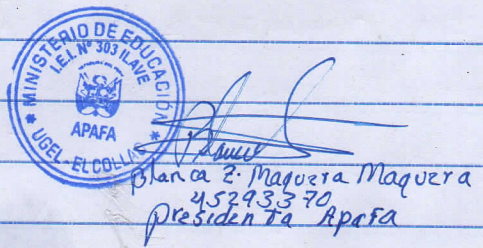 MINISTERIO DE EDUCACIÓN
I.E.I. N° 303 ILAVE
APAFA
UGEL - EL COLLAO
Blanca Z. Maquera Maquera
45293370
presidenta Apafa